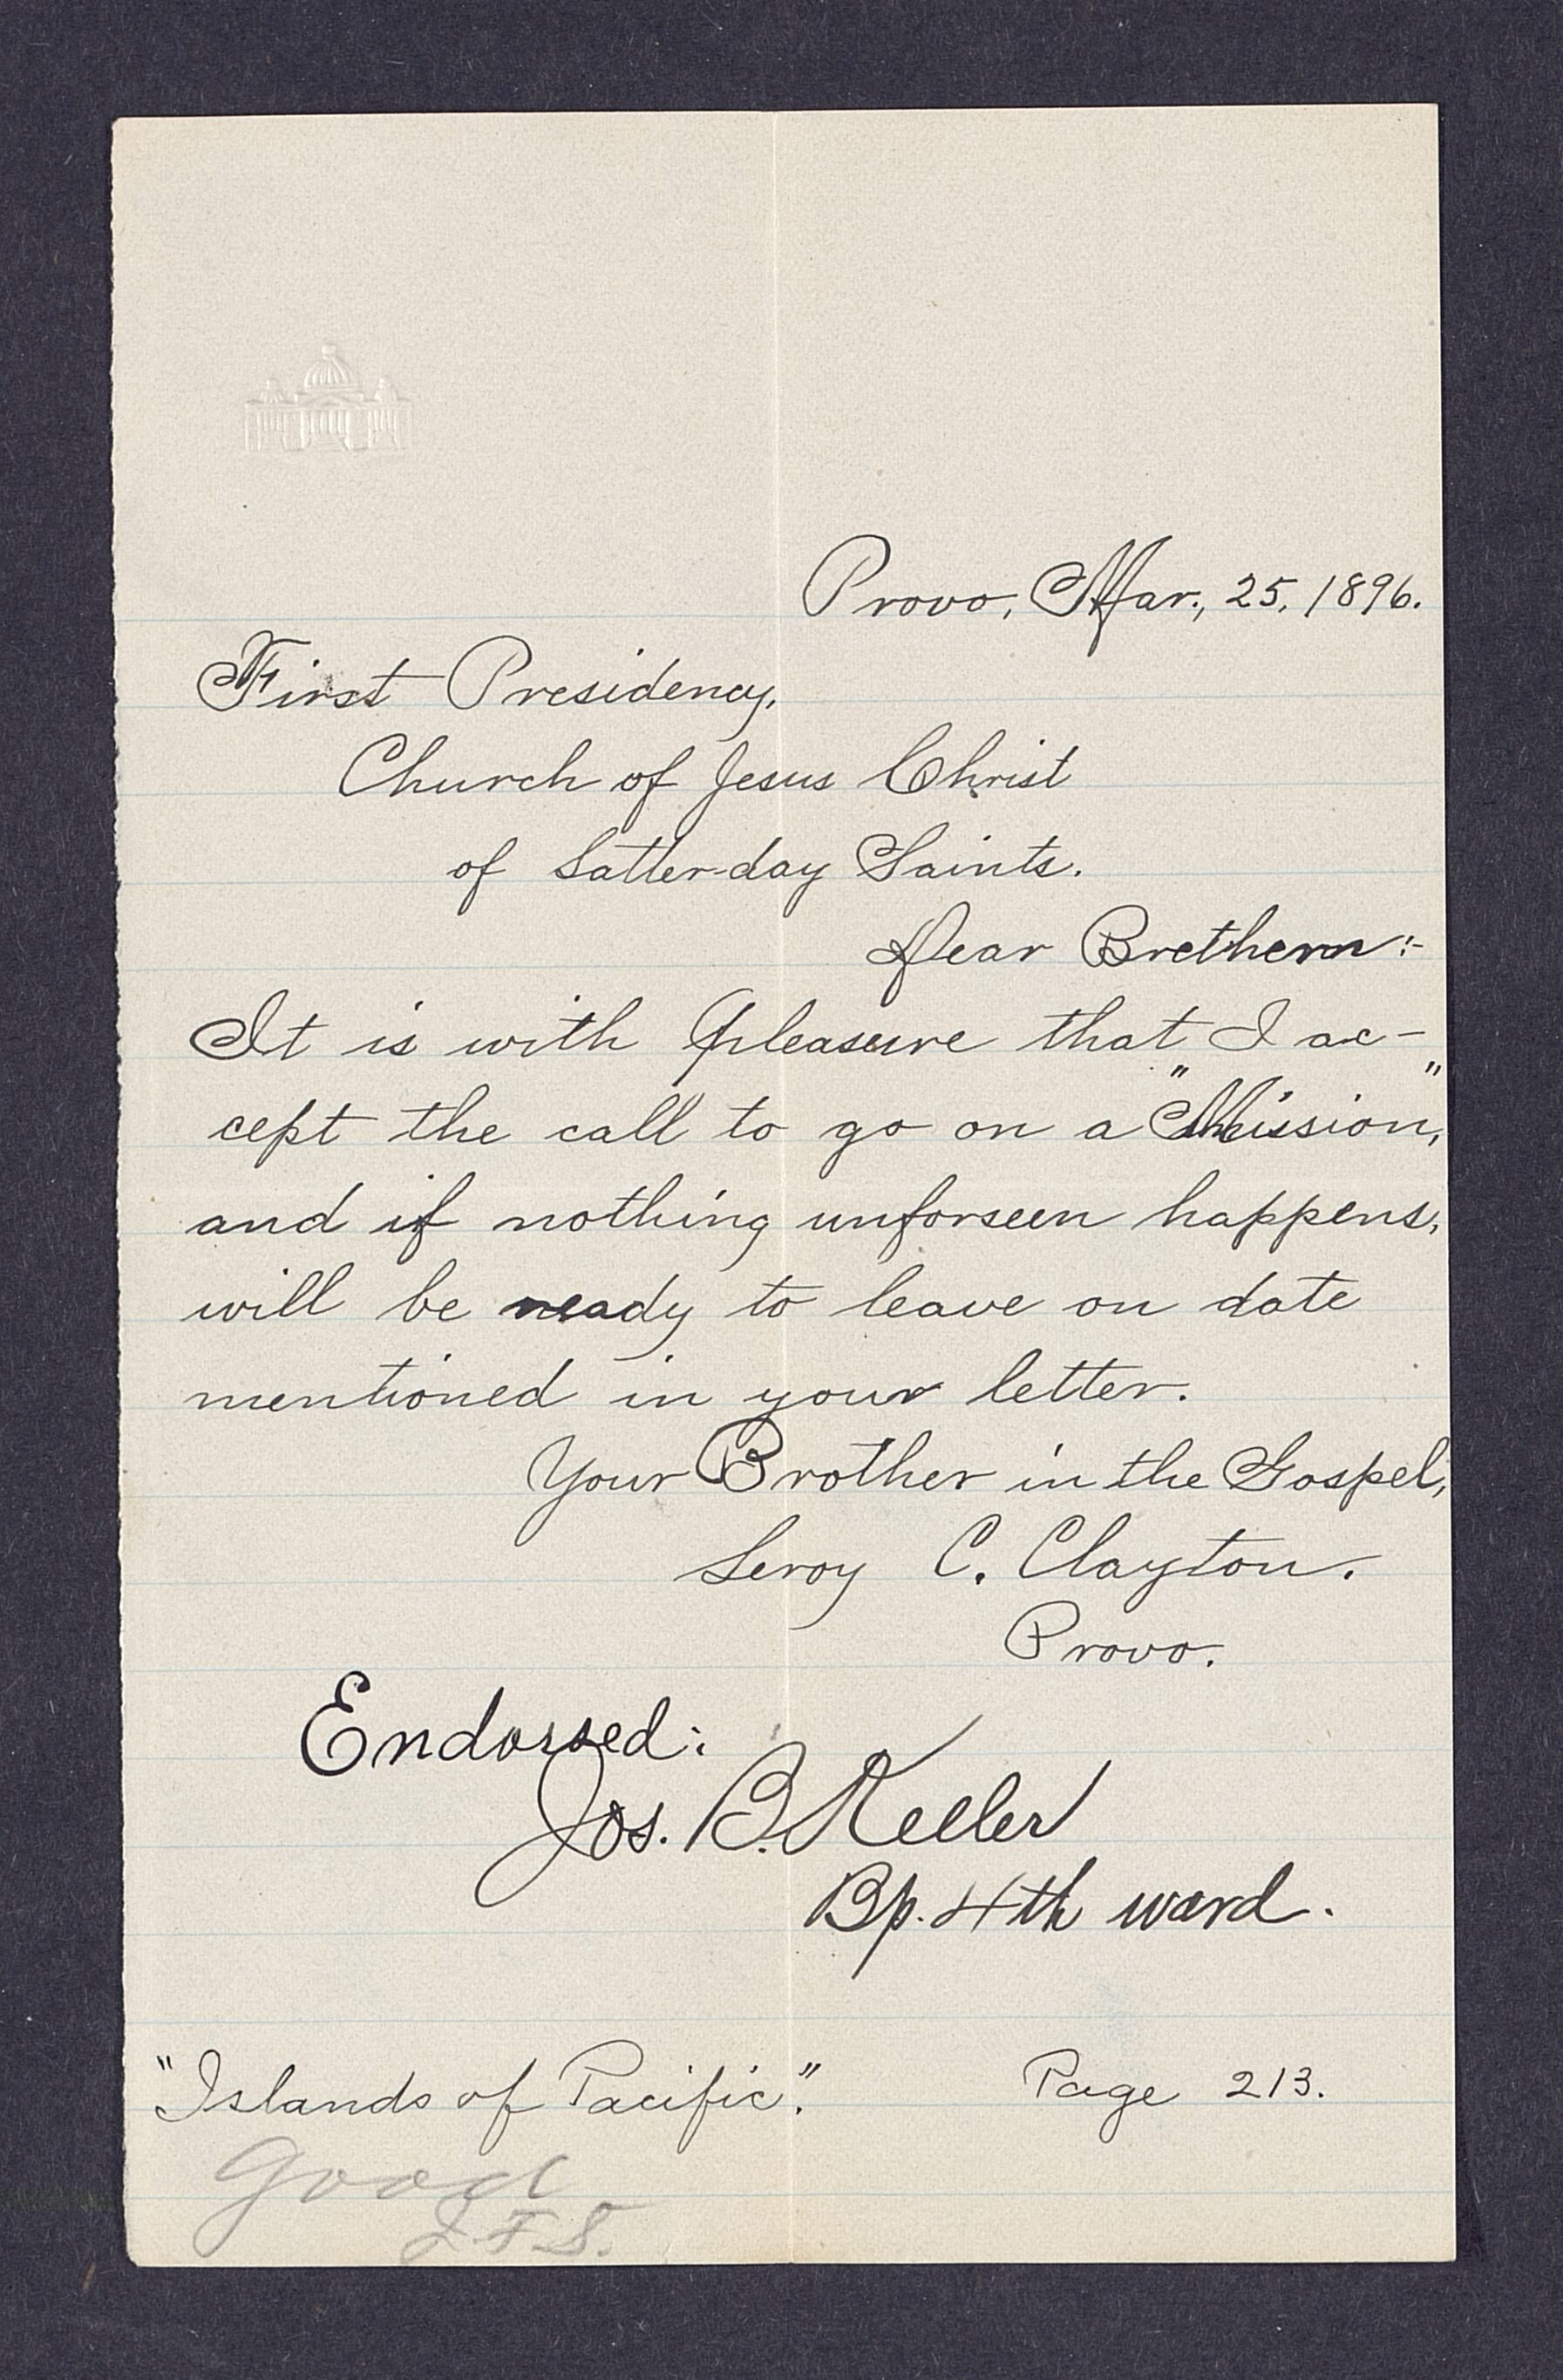 Provo, Mar., 25, 1896.
First Presidency,
Church of Jesus Christ
of Latter-day Saints.
Dear Brethern:-
It is with pleasure that I ac-
cept the call to go on a "Mission,"
and if nothing unforseen happens,
will be ready to leave on date
mentioned in your letter.
Your Brother in the Gospel,
Leroy C. Clayton.
Provo.
Endorsed:
Jos. B. Keeler
Bp. 4th ward.
"Islands of Pacific." Page 213.
Good
J. F. S.